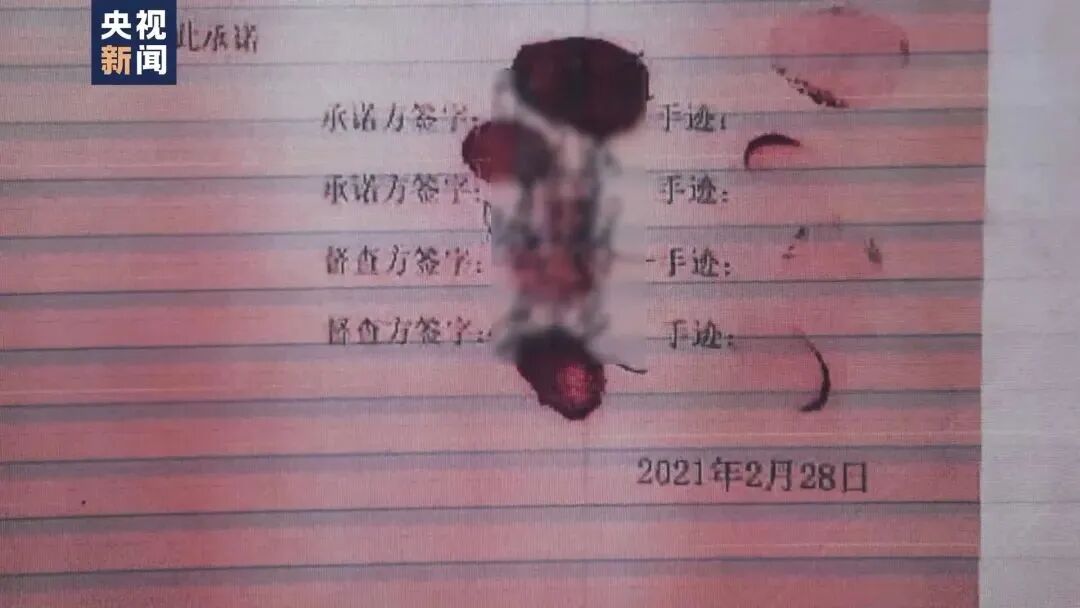 央视
新闻
此承诺
承诺方签字: 手迹:
承诺方签字: 手迹:
督查方签字: 手迹:
督查方签字: 手迹:
2021年2月28日